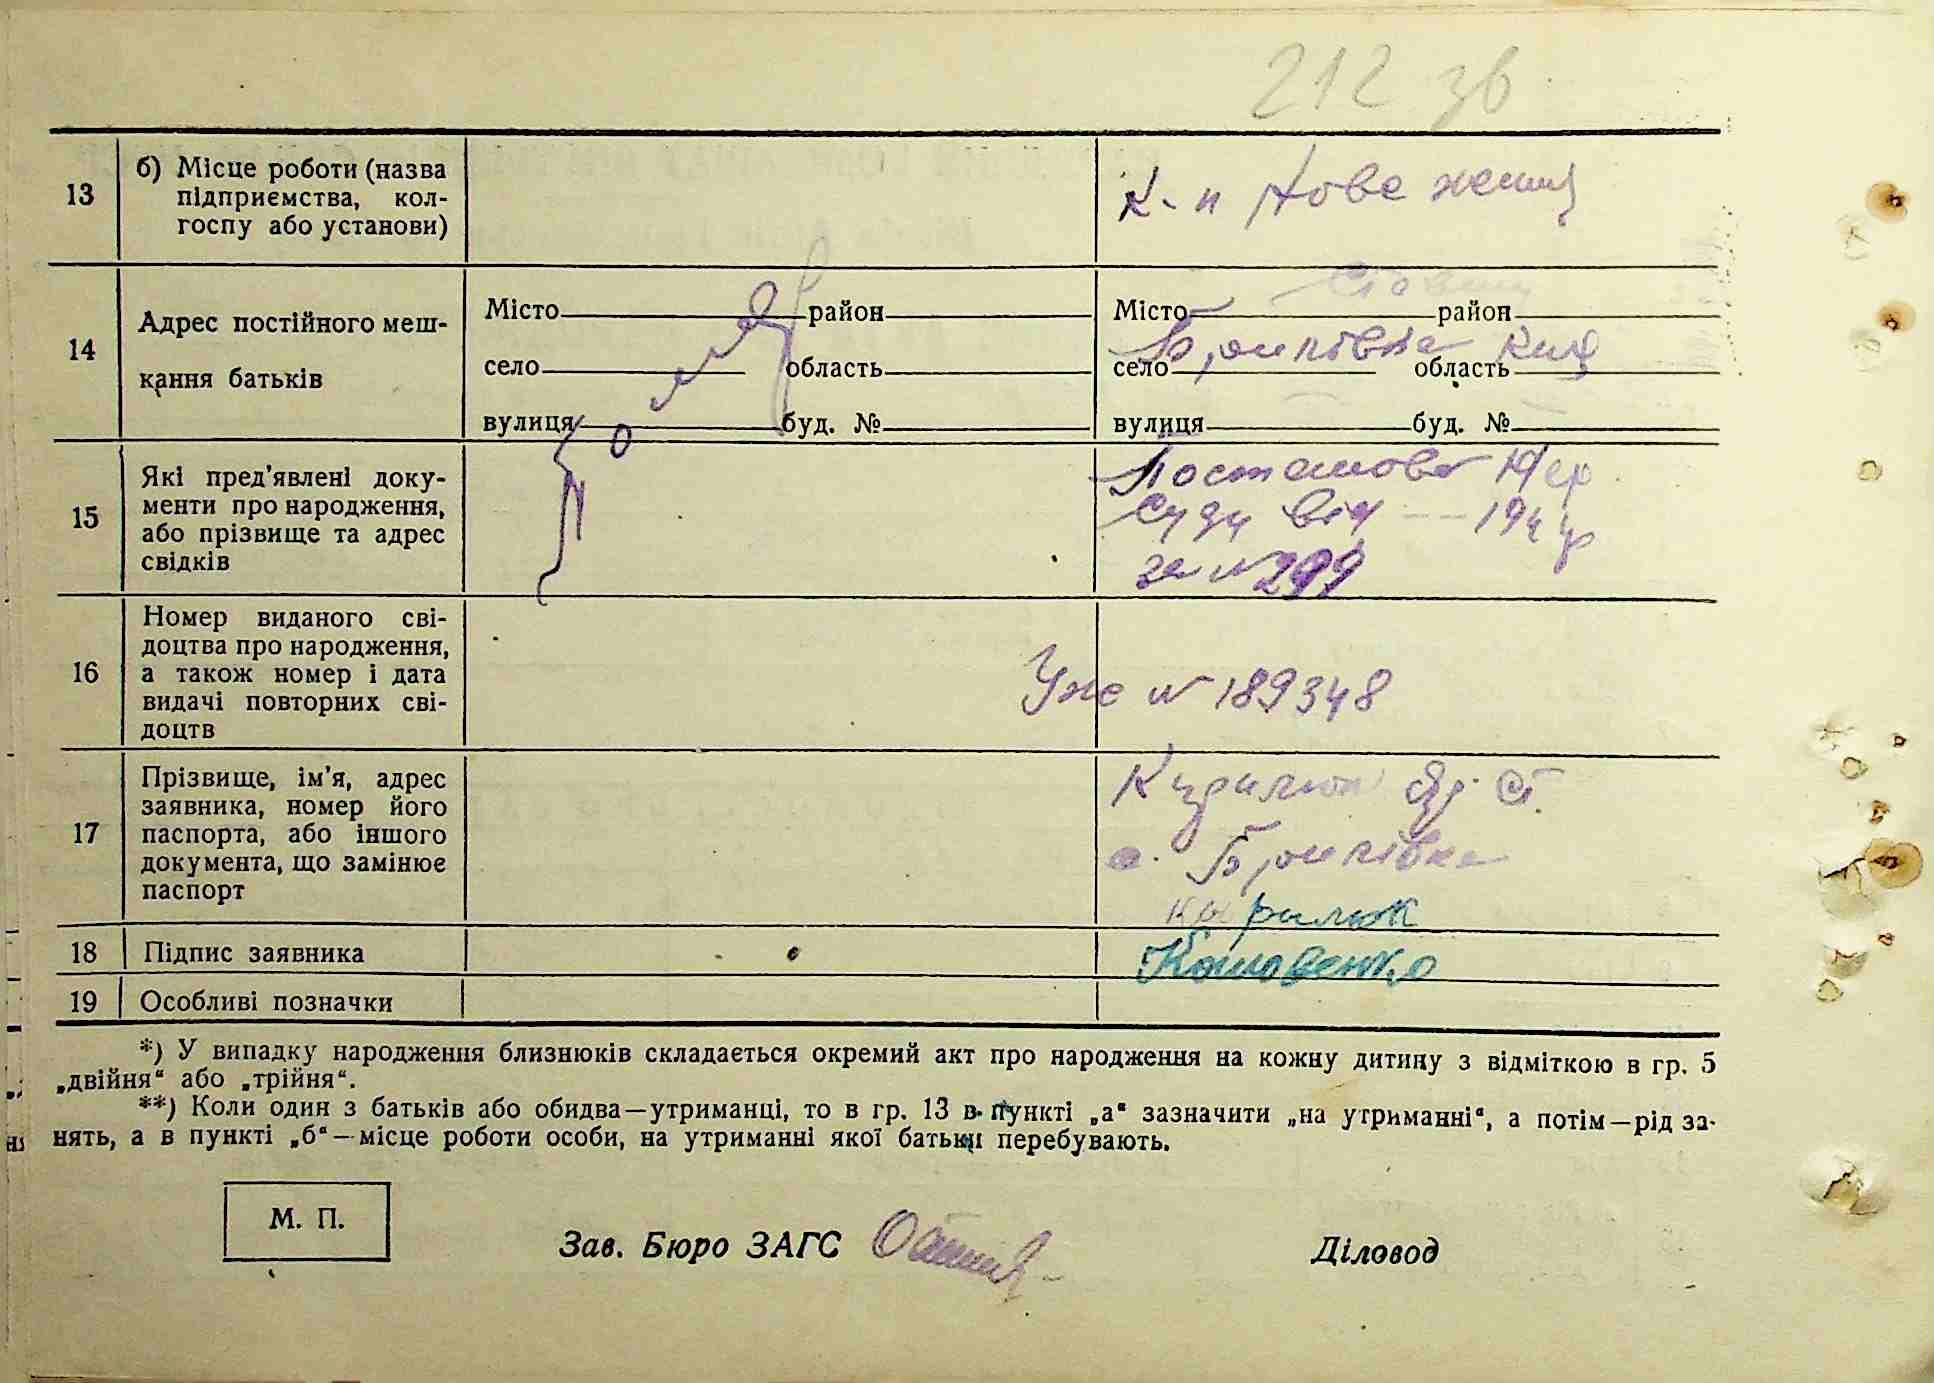 212 зв
13
б) Місце роботи (назва
підприємства, кол-
госпу або установи)
К-п Нове
14
Адрес постійного меш-
кання батьків
Місто район
село область
вулиця буд. №
Місто район
село область
вулиця буд. №
15
Які пред'явлені доку-
менти про народження,
або прізвище та адрес
свідків
Постанова
Суду від
за N 299
16
Номер виданого сві-
доцтва про народження,
а також номер і дата
видачі повторних сві-
доцтв
N 189348
17
Прізвище, ім'я, адрес
заявника, номер його
паспорта, або іншого
документа, що замінює
паспорт
с. Брилівка
18
Підпис заявника
19
Особливі позначки
*) У випадку народження близнюків складається окремий акт про народження на кожну дитину з відміткою в гр. 5
„двійня“ або „трійня“.
**) Коли один з батьків або обидва—утриманці, то в гр. 13 в пункті „а“ зазначити „на утриманні“, а потім—рід за-
нять, а в пункті „б“—місце роботи особи, на утриманні якої батьки перебувають.
М. П.
Зав. Бюро ЗАГС
Діловод